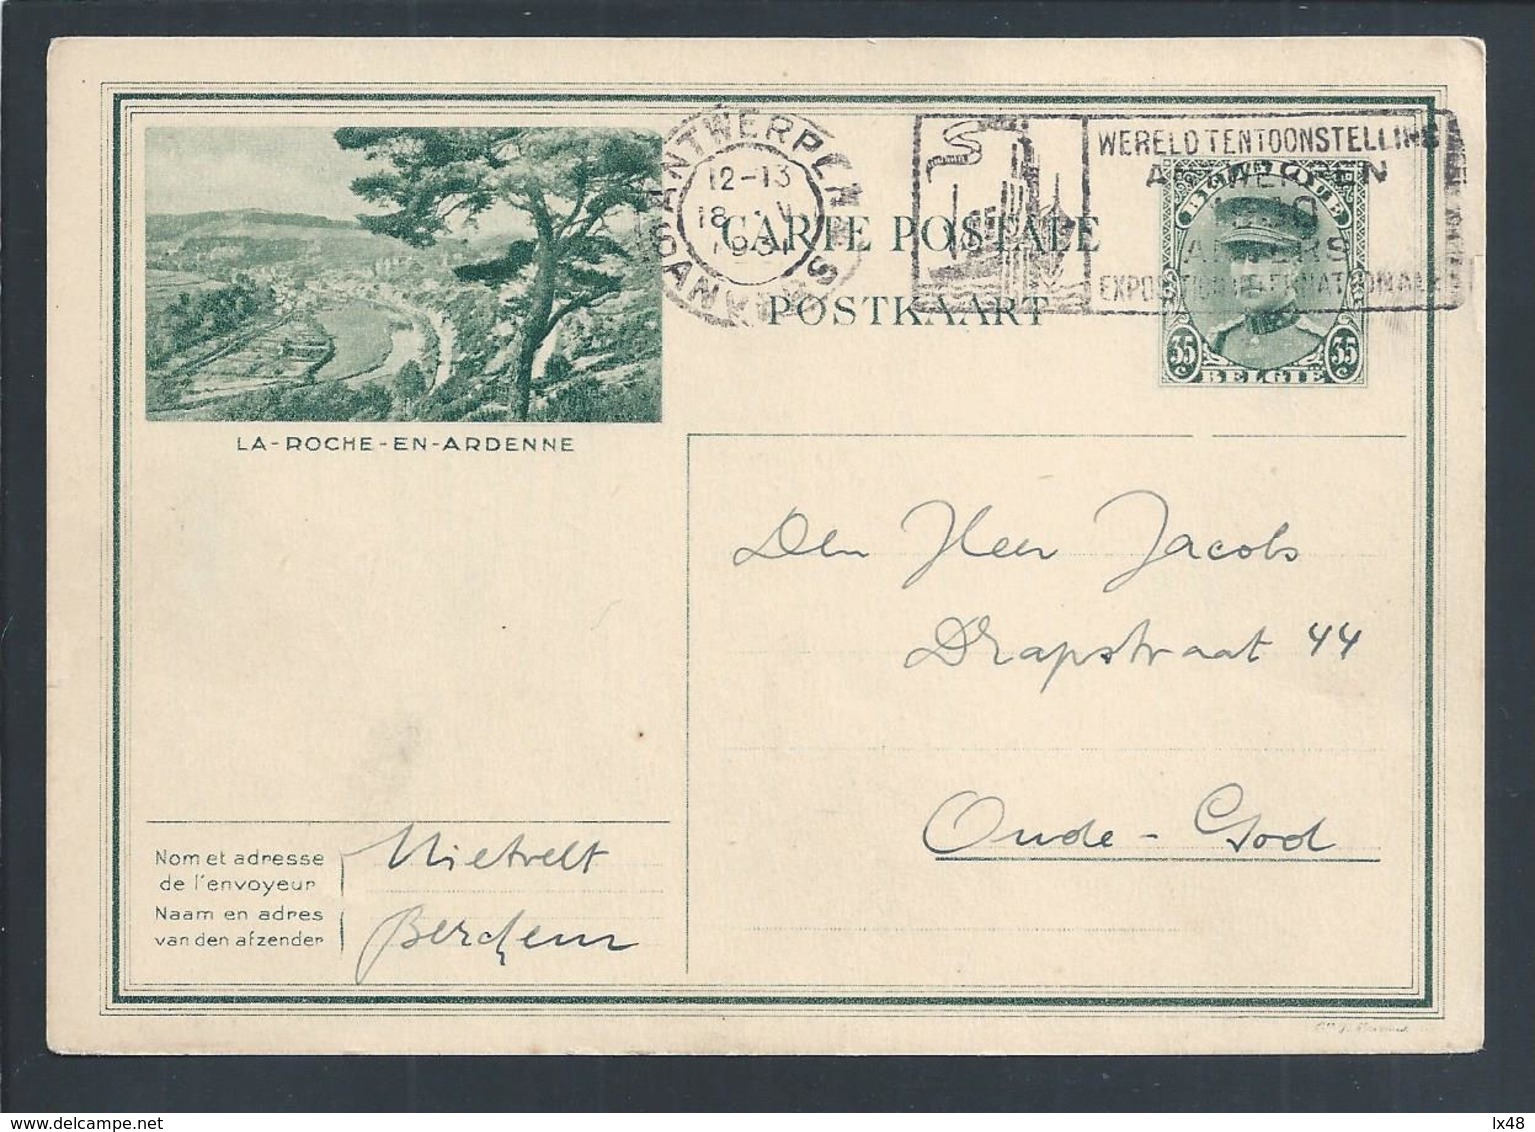 ANTWERPEN
12-13
18
1931
ANVERS
WERELDTENTOONSTELLING
ANTWERPEN
1930
ANVERS
EXPOSITION INTERNATIONALE
BELGIQUE
35 c 35 c
BELGIE
CARTE POSTALE
POSTKAART
LA-ROCHE-EN-ARDENNE
Den Heer Jacobs
Drapstraat 44
Oude-God
Nom et adresse
de l'envoyeur
Naam en adres
van den afzender
Mietvelt
Berchem
lx48